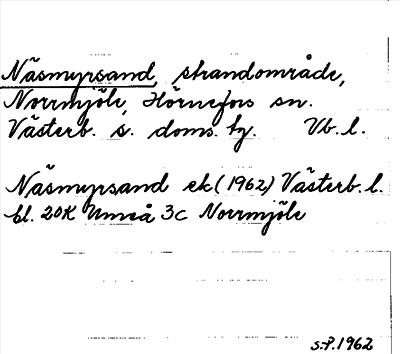 Näsmyrsand, strandområde,
Norrmjöle, Hörnefors sn.
Västerb. s. doms. hg. Vb. l.
Näsmyrsand ek (1962) Västerb. l.
bl. 20K Umeå 3c Norrmjöle
S.P. 1962